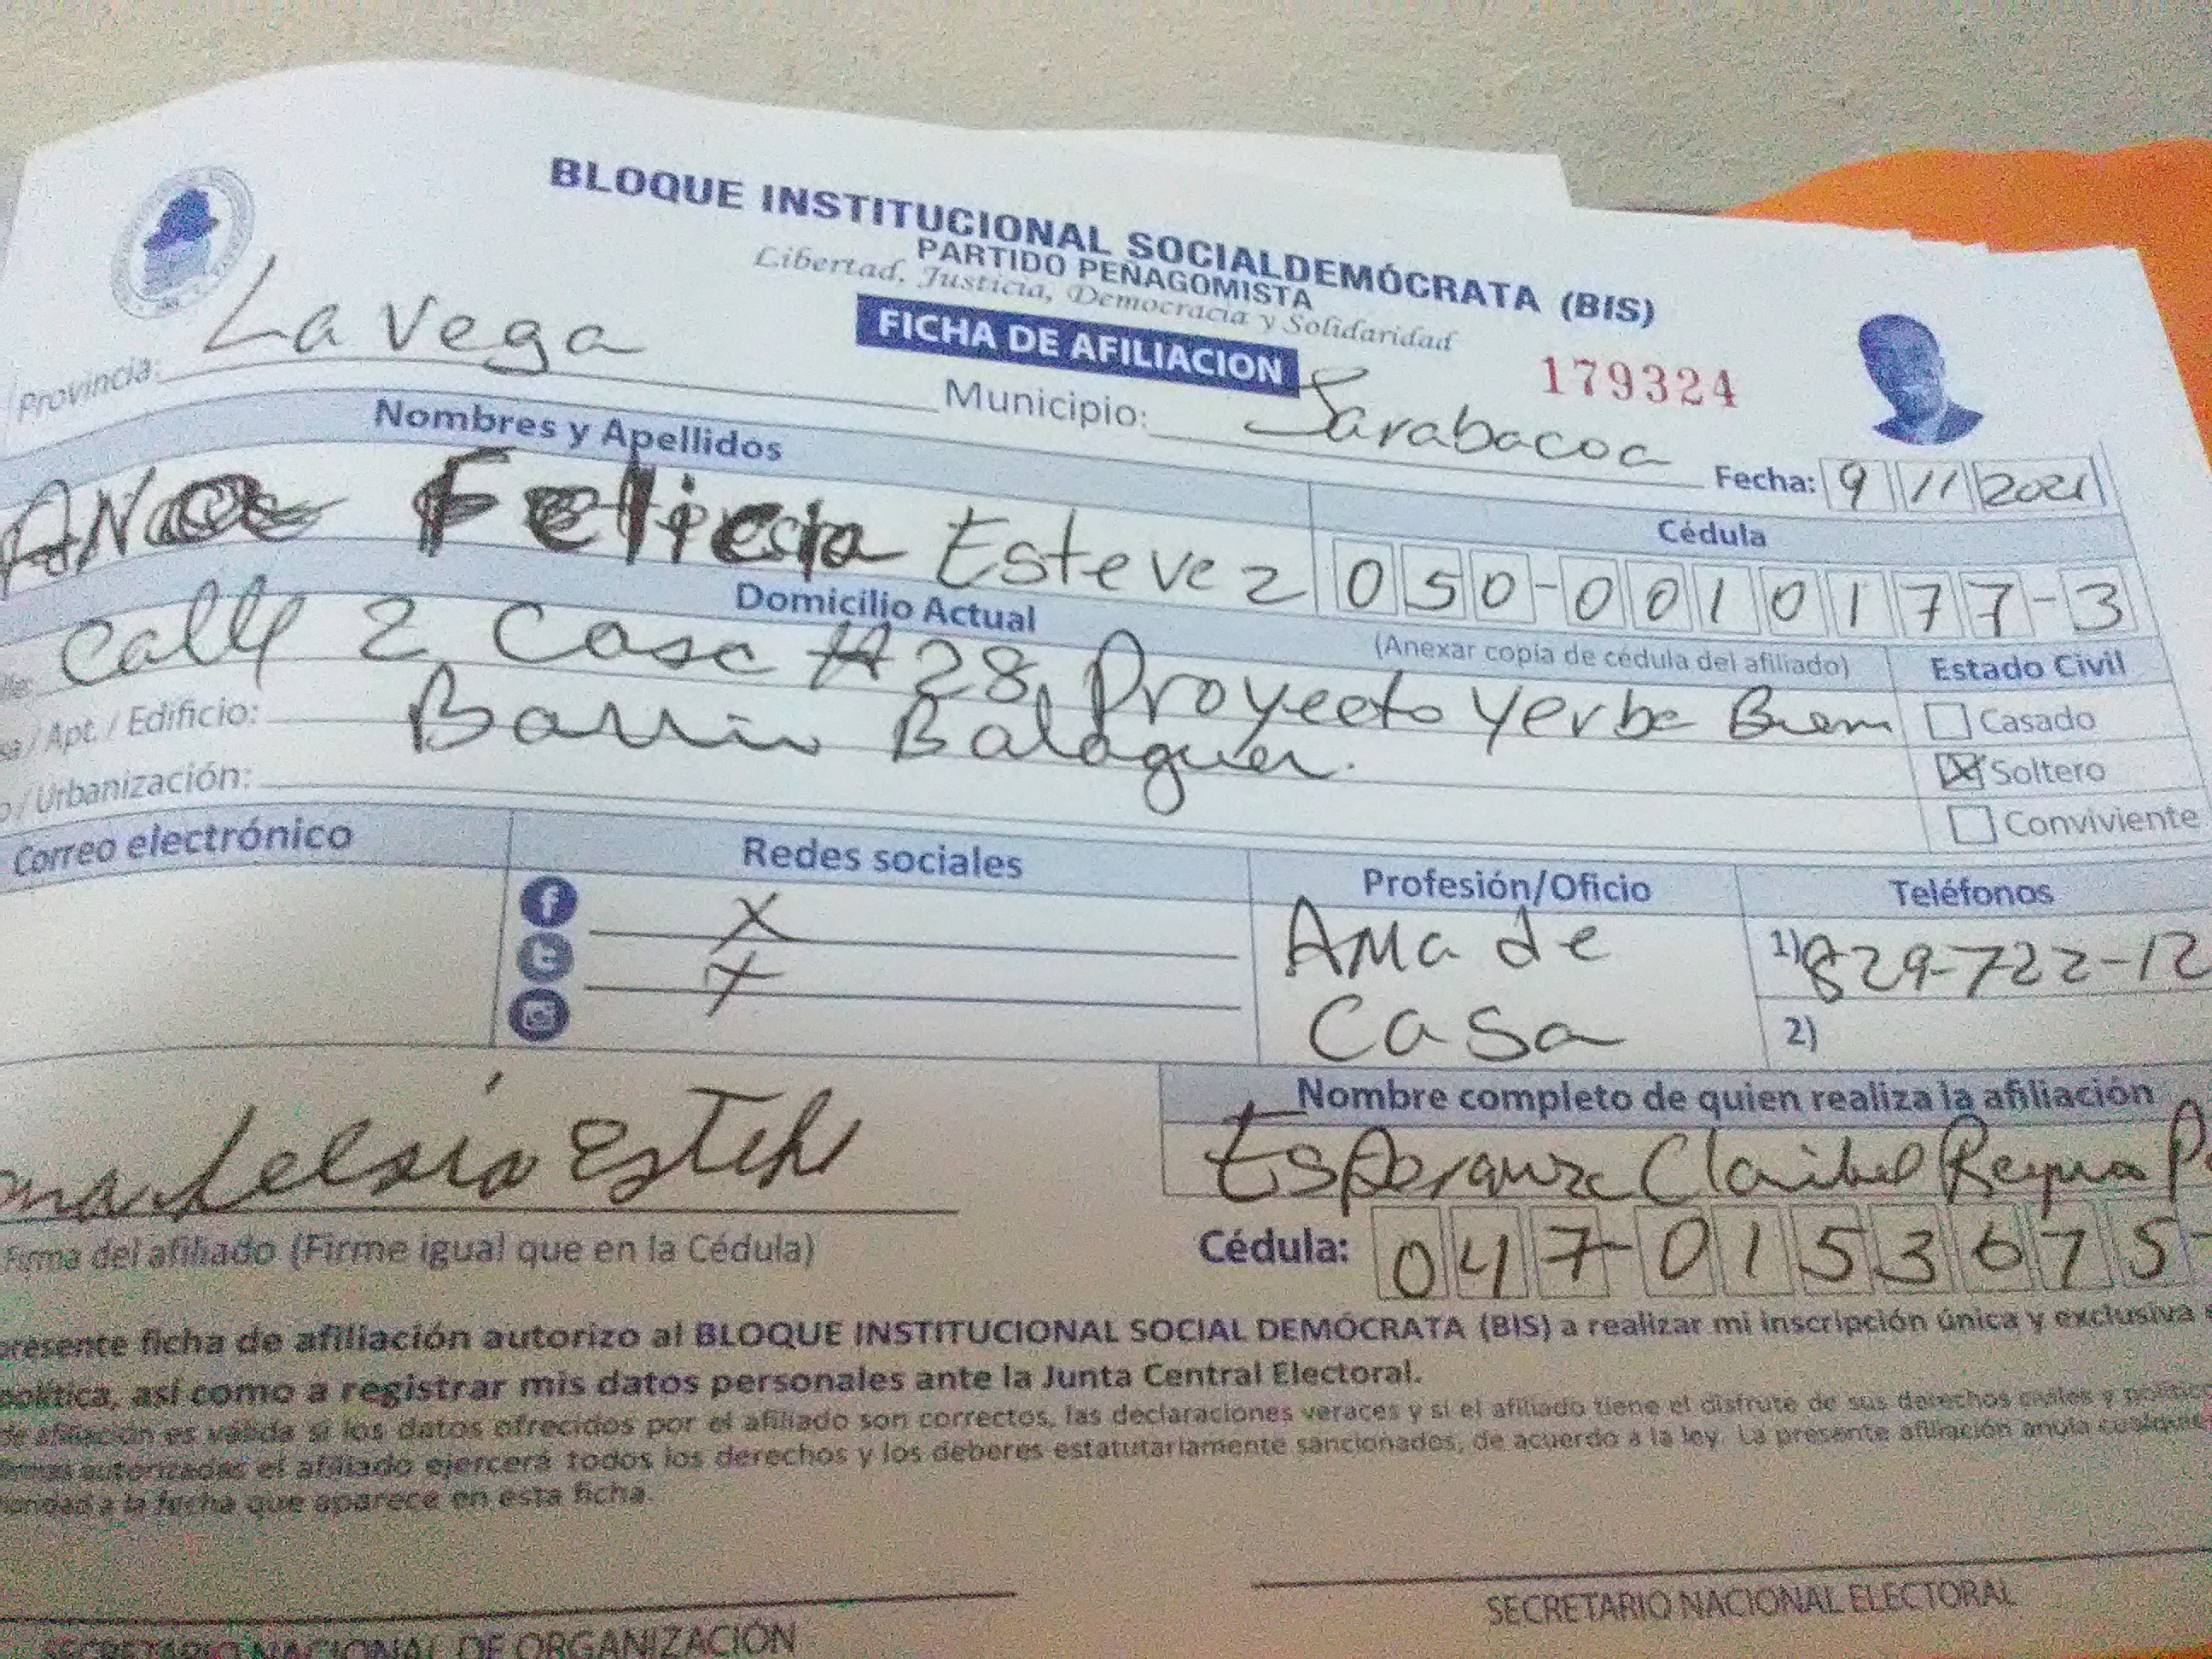 BLOQUE INSTITUCIONAL SOCIALDEMÓCRATA (BIS)
PARTIDO PEÑAGOMISTA
Libertad, Justicia, Democracia y Solidaridad
FICHA DE AFILIACION
179324
Provincia: La Vega
Municipio: Jarabacoa
Fecha: 9 11 2021
Nombres y Apellidos
Cédula
Ana Felicia Estevez
050-0010177-3
Domicilio Actual
(Anexar copia de cédula del afiliado)
Estado Civil
Calle 2 Casa #28, Proyecto Yerba Buena
/ Apt. / Edificio: Barrio Balaguer.
/Urbanización:
Casado
X Soltero
Conviviente
Correo electrónico
Redes sociales
Profesión/Oficio
Teléfonos
X
X
Ama de
Casa
1) 829-722-12
2)
Nombre completo de quien realiza la afiliación
Esperanza Claribel Reyna P
Firma del afiliado (Firme igual que en la Cédula)
Cédula: 047-0153675-
presente ficha de afiliación autorizo al BLOQUE INSTITUCIONAL SOCIAL DEMÓCRATA (BIS) a realizar mi inscripción única y exclusiva
política, así como a registrar mis datos personales ante la Junta Central Electoral.
de afiliación es válida si los datos ofrecidos por el afiliado son correctos, las declaraciones veraces y si el afiliado tiene el disfrute de sus derechos civiles y
autorizadas el afiliado ejercerá todos los derechos y los deberes estatutariamente sancionados, de acuerdo a la ley. La presente afiliación anula
a la fecha que aparece en esta ficha.
SECRETARIO NACIONAL DE ORGANIZACIÓN
SECRETARIO NACIONAL ELECTORAL